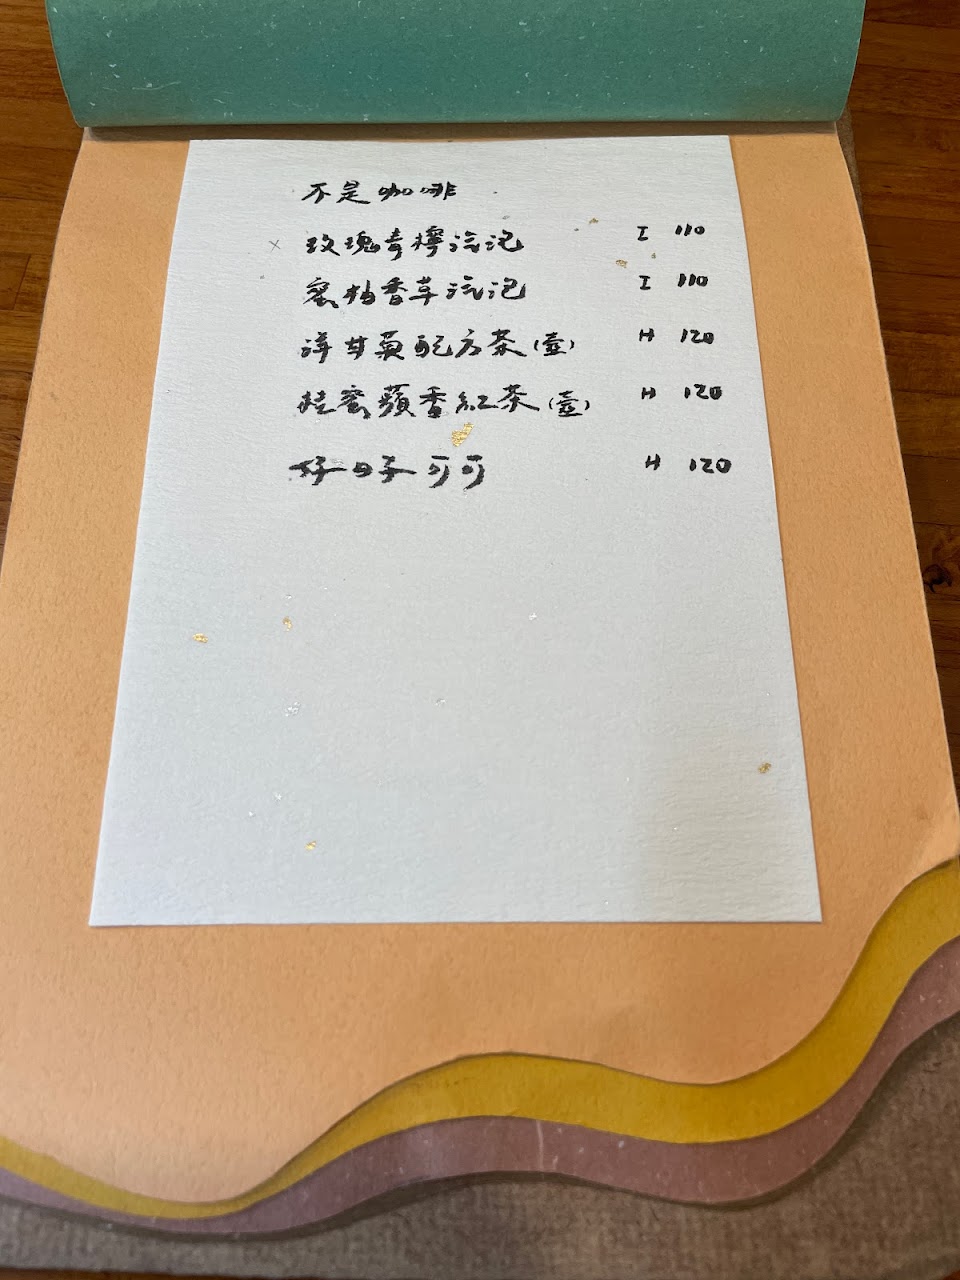 不是咖啡
玫瑰青檸汽泡 I 110
蜜柚香草汽泡 I 110
洋甘菊配方茶(壺) H 120
桂蜜蘋香紅茶(壺) H 120
好日子可可 H 120